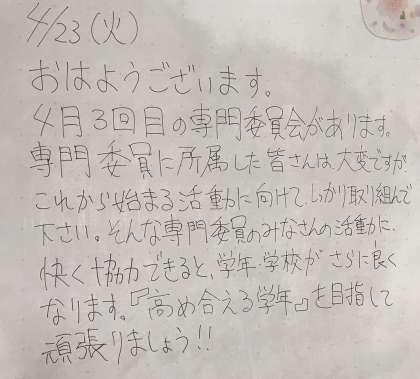 4/23(火)
おはようございます。
4月3回目の専門委員会があります。
専門委員に所属した皆さんは、大変ですが、
これから始まる活動に向けて、しっかり取り組んで
下さい。そんな専門委員のみなさんの活動に、
快く協力できると、学年・学校がさらに良く
なります。『高め合える学年』を目指して
頑張りましょう!!